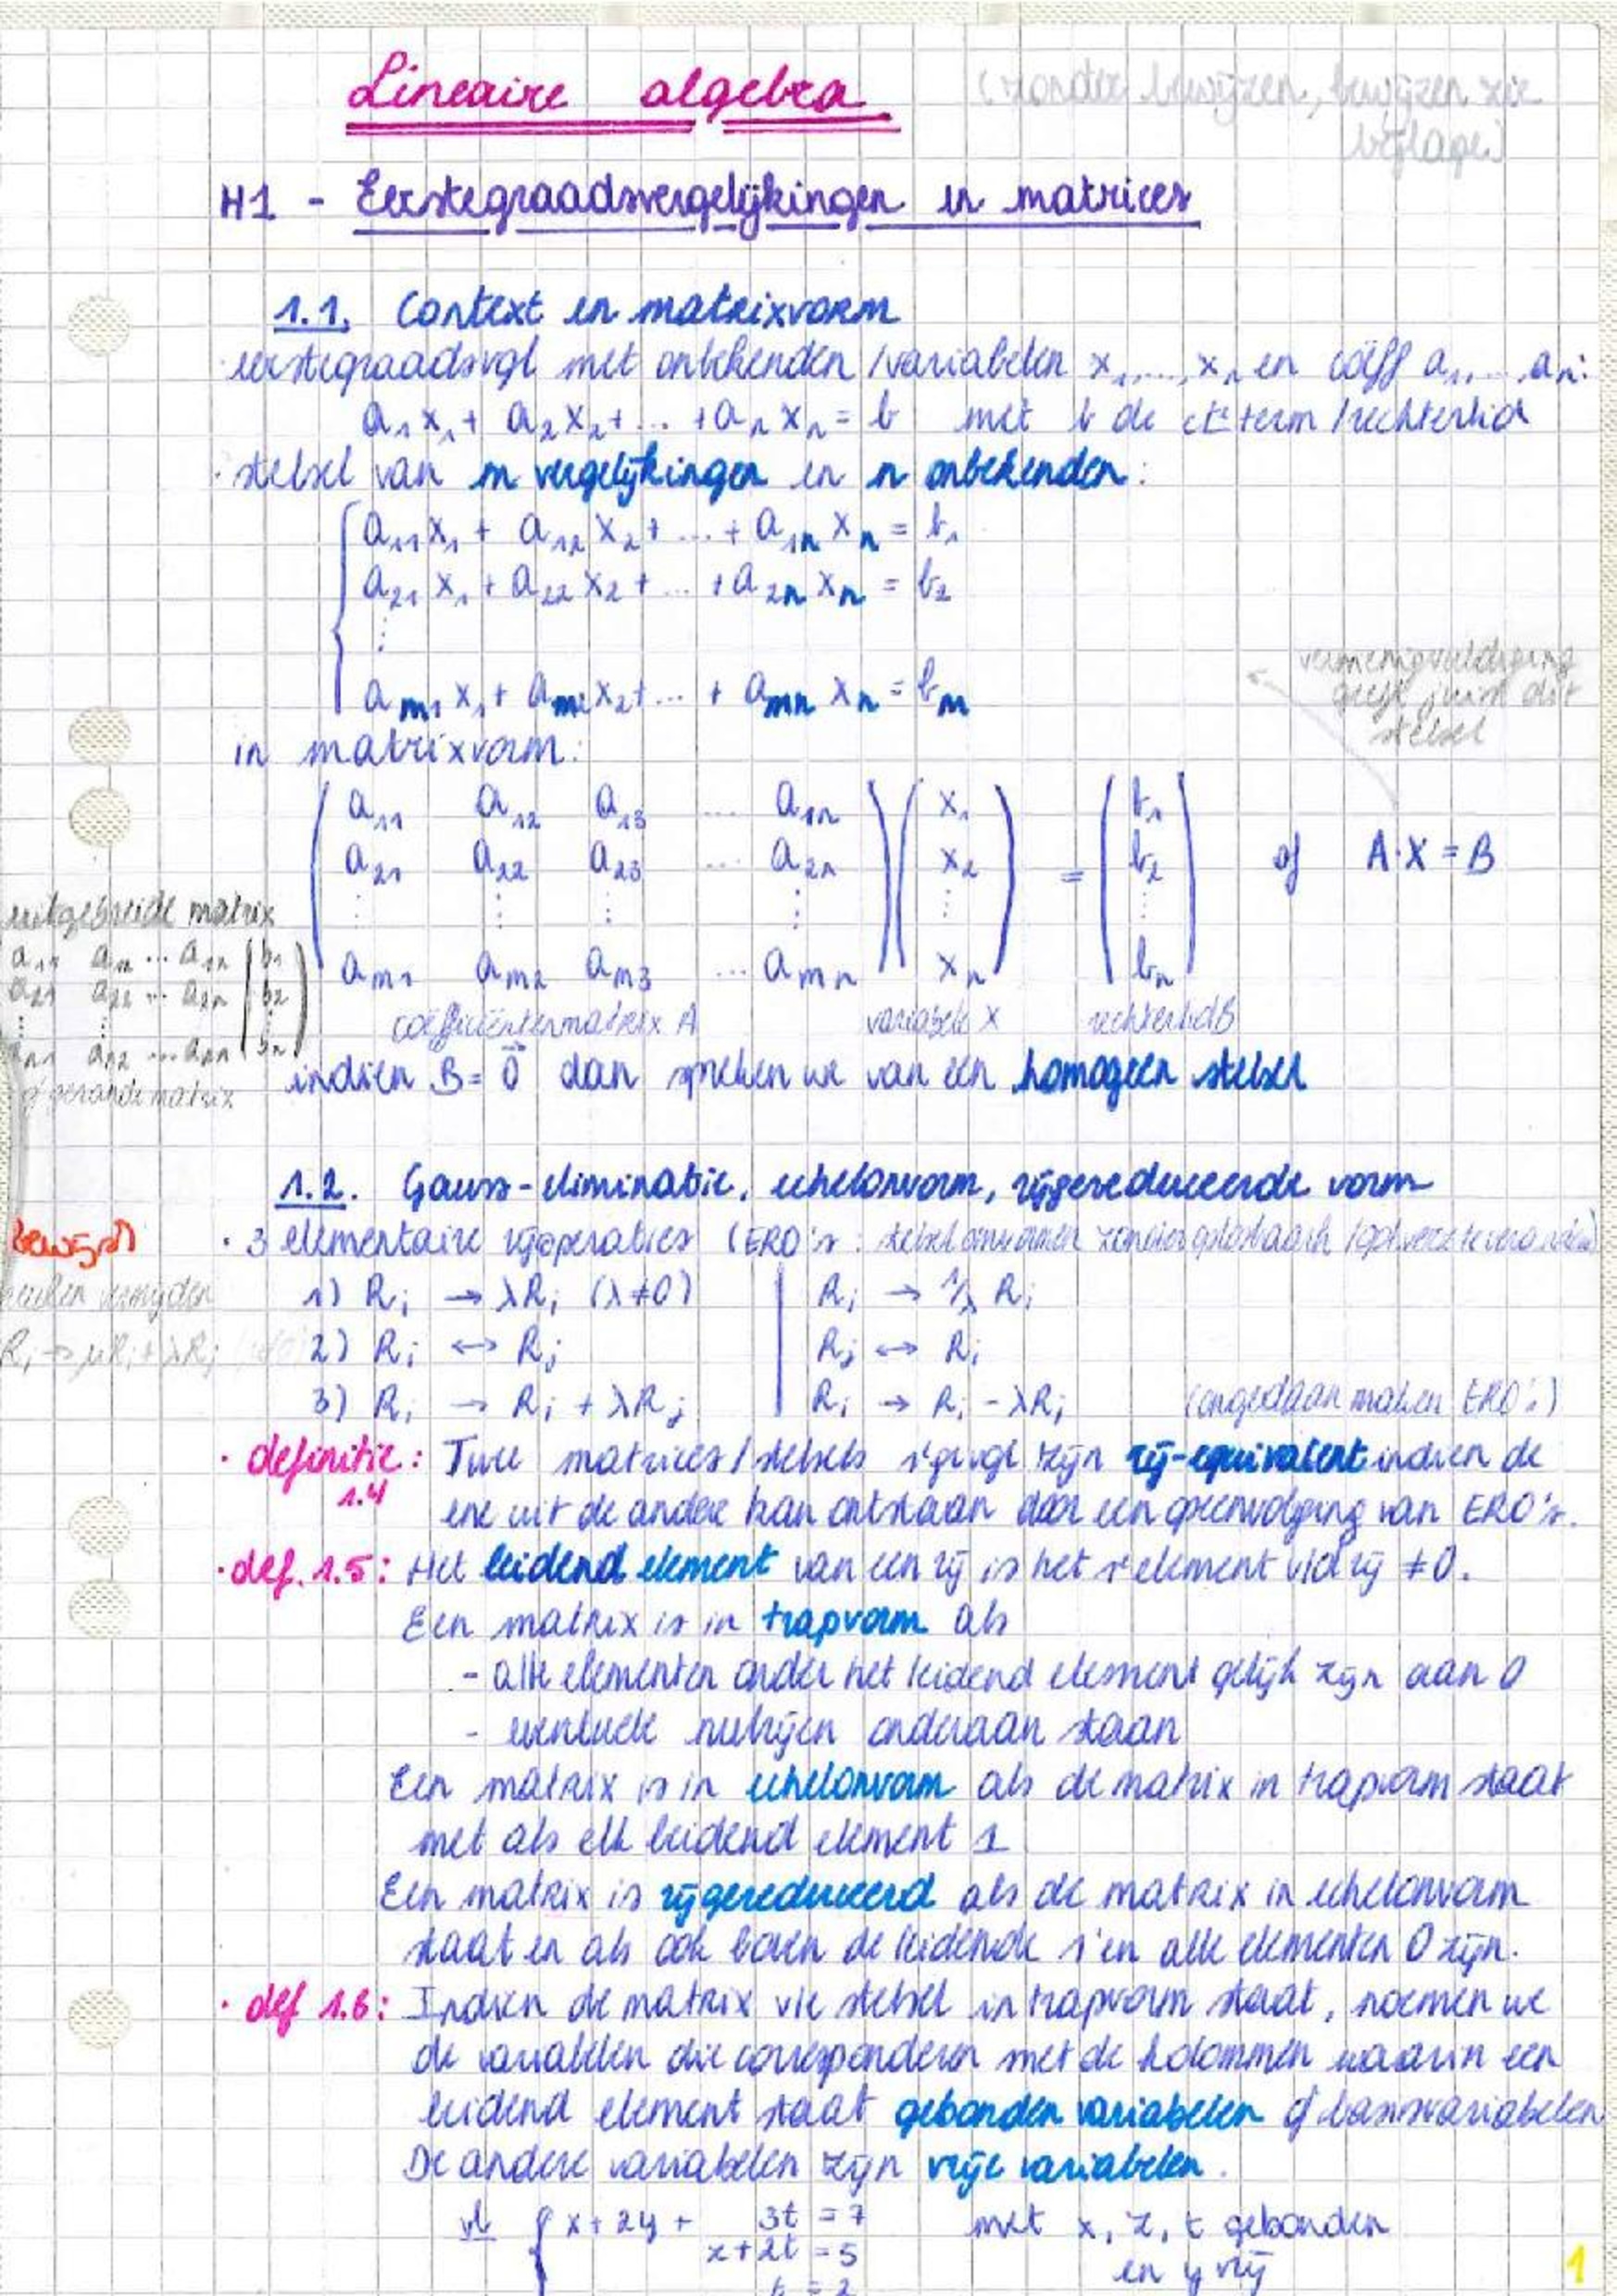 Lineaire algebra
(zonder bewijzen, bewijzen zie
bijlage)
H1 - Eerstegraadsvergelijkingen en matrices
1.1. Context en matrixvorm
· eerstegraadsvgl met onbekenden /variabelen x₁,...,xₙ en coëff a₁,...,aₙ:
a₁x₁ + a₂x₂ + ... + aₙxₙ = b met b de cte term /rechterlid
· stelsel van m vergelijkingen en n onbekenden:
a₁₁x₁ + a₁₂x₂ + ... + a₁ₙxₙ = b₁
a₂₁x₁ + a₂₂x₂ + ... + a₂ₙxₙ = b₂
⋮
aₘ₁x₁ + aₘ₂x₂ + ... + aₘₙxₙ = bₘ
vermenigvuldiging
geeft juist dit
stelsel
in matrixvorm:
a₁₁ a₁₂ a₁₃ ... a₁ₙ x₁ b₁
a₂₁ a₂₂ a₂₃ ... a₂ₙ x₂ = b₂ of A·X = B
⋮ ⋮ ⋮ ⋮ ⋮ ⋮
aₘ₁ aₘ₂ aₘ₃ ... aₘₙ xₙ bₙ
coëfficiëntenmatrix A variabele X rechterlid B
uitgebreide matrix
a₁₁ a₁₂ ... a₁ₙ | b₁
a₂₁ a₂₂ ... a₂ₙ | b₂
⋮ ⋮ ⋮
aₙ₁ aₙ₂ ... aₙₙ | bₙ
of gerande matrix
indien B = 0⃗ dan spreken we van een homogeen stelsel
1.2. Gauss-eliminatie, echelonvorm, rijgereduceerde vorm
bewijs
· 3 elementaire rijoperaties (ERO's: stelsel omvormen zonder
1) Rᵢ → λRᵢ (λ≠0) | Rᵢ → 1/λ Rᵢ
breuken vermijden
2) Rᵢ ↔ Rⱼ | Rⱼ ↔ Rᵢ
Rᵢ → μRᵢ + λRⱼ
3) Rᵢ → Rᵢ + λRⱼ | Rᵢ → Rᵢ - λRⱼ (ongedaan maken ERO's)
· definitie: Twee matrices / stelsels v'gevgl zijn rij-equivalent indien de
1.4
ene uit de andere kan ontstaan door een opeenvolging van ERO's.
· def. 1.5: Het leidend element van een rij is het 1e element v/d rij ≠0.
Een matrix is in trapvorm als
- alle elementen onder het leidend element gelijk zijn aan 0
- eventuele nulrijen onderaan staan
Een matrix is in echelonvorm als de matrix in trapvorm staat
met als elk leidend element 1
Een matrix is rijgereduceerd als de matrix in echelonvorm
staat en als ook boven de leidende 1'en alle elementen 0 zijn.
· def 1.6: Indien de matrix v/e stelsel in trapvorm staat, noemen we
de variabelen die corresponderen met de kolommen waarin een
leidend element staat gebonden variabelen of basisvariabelen
De andere variabelen zijn vrije variabelen.
vb x + 2y + 3t = 7 met x, z, t gebonden
z + 2t = 5 en y vrij
t = 2
1